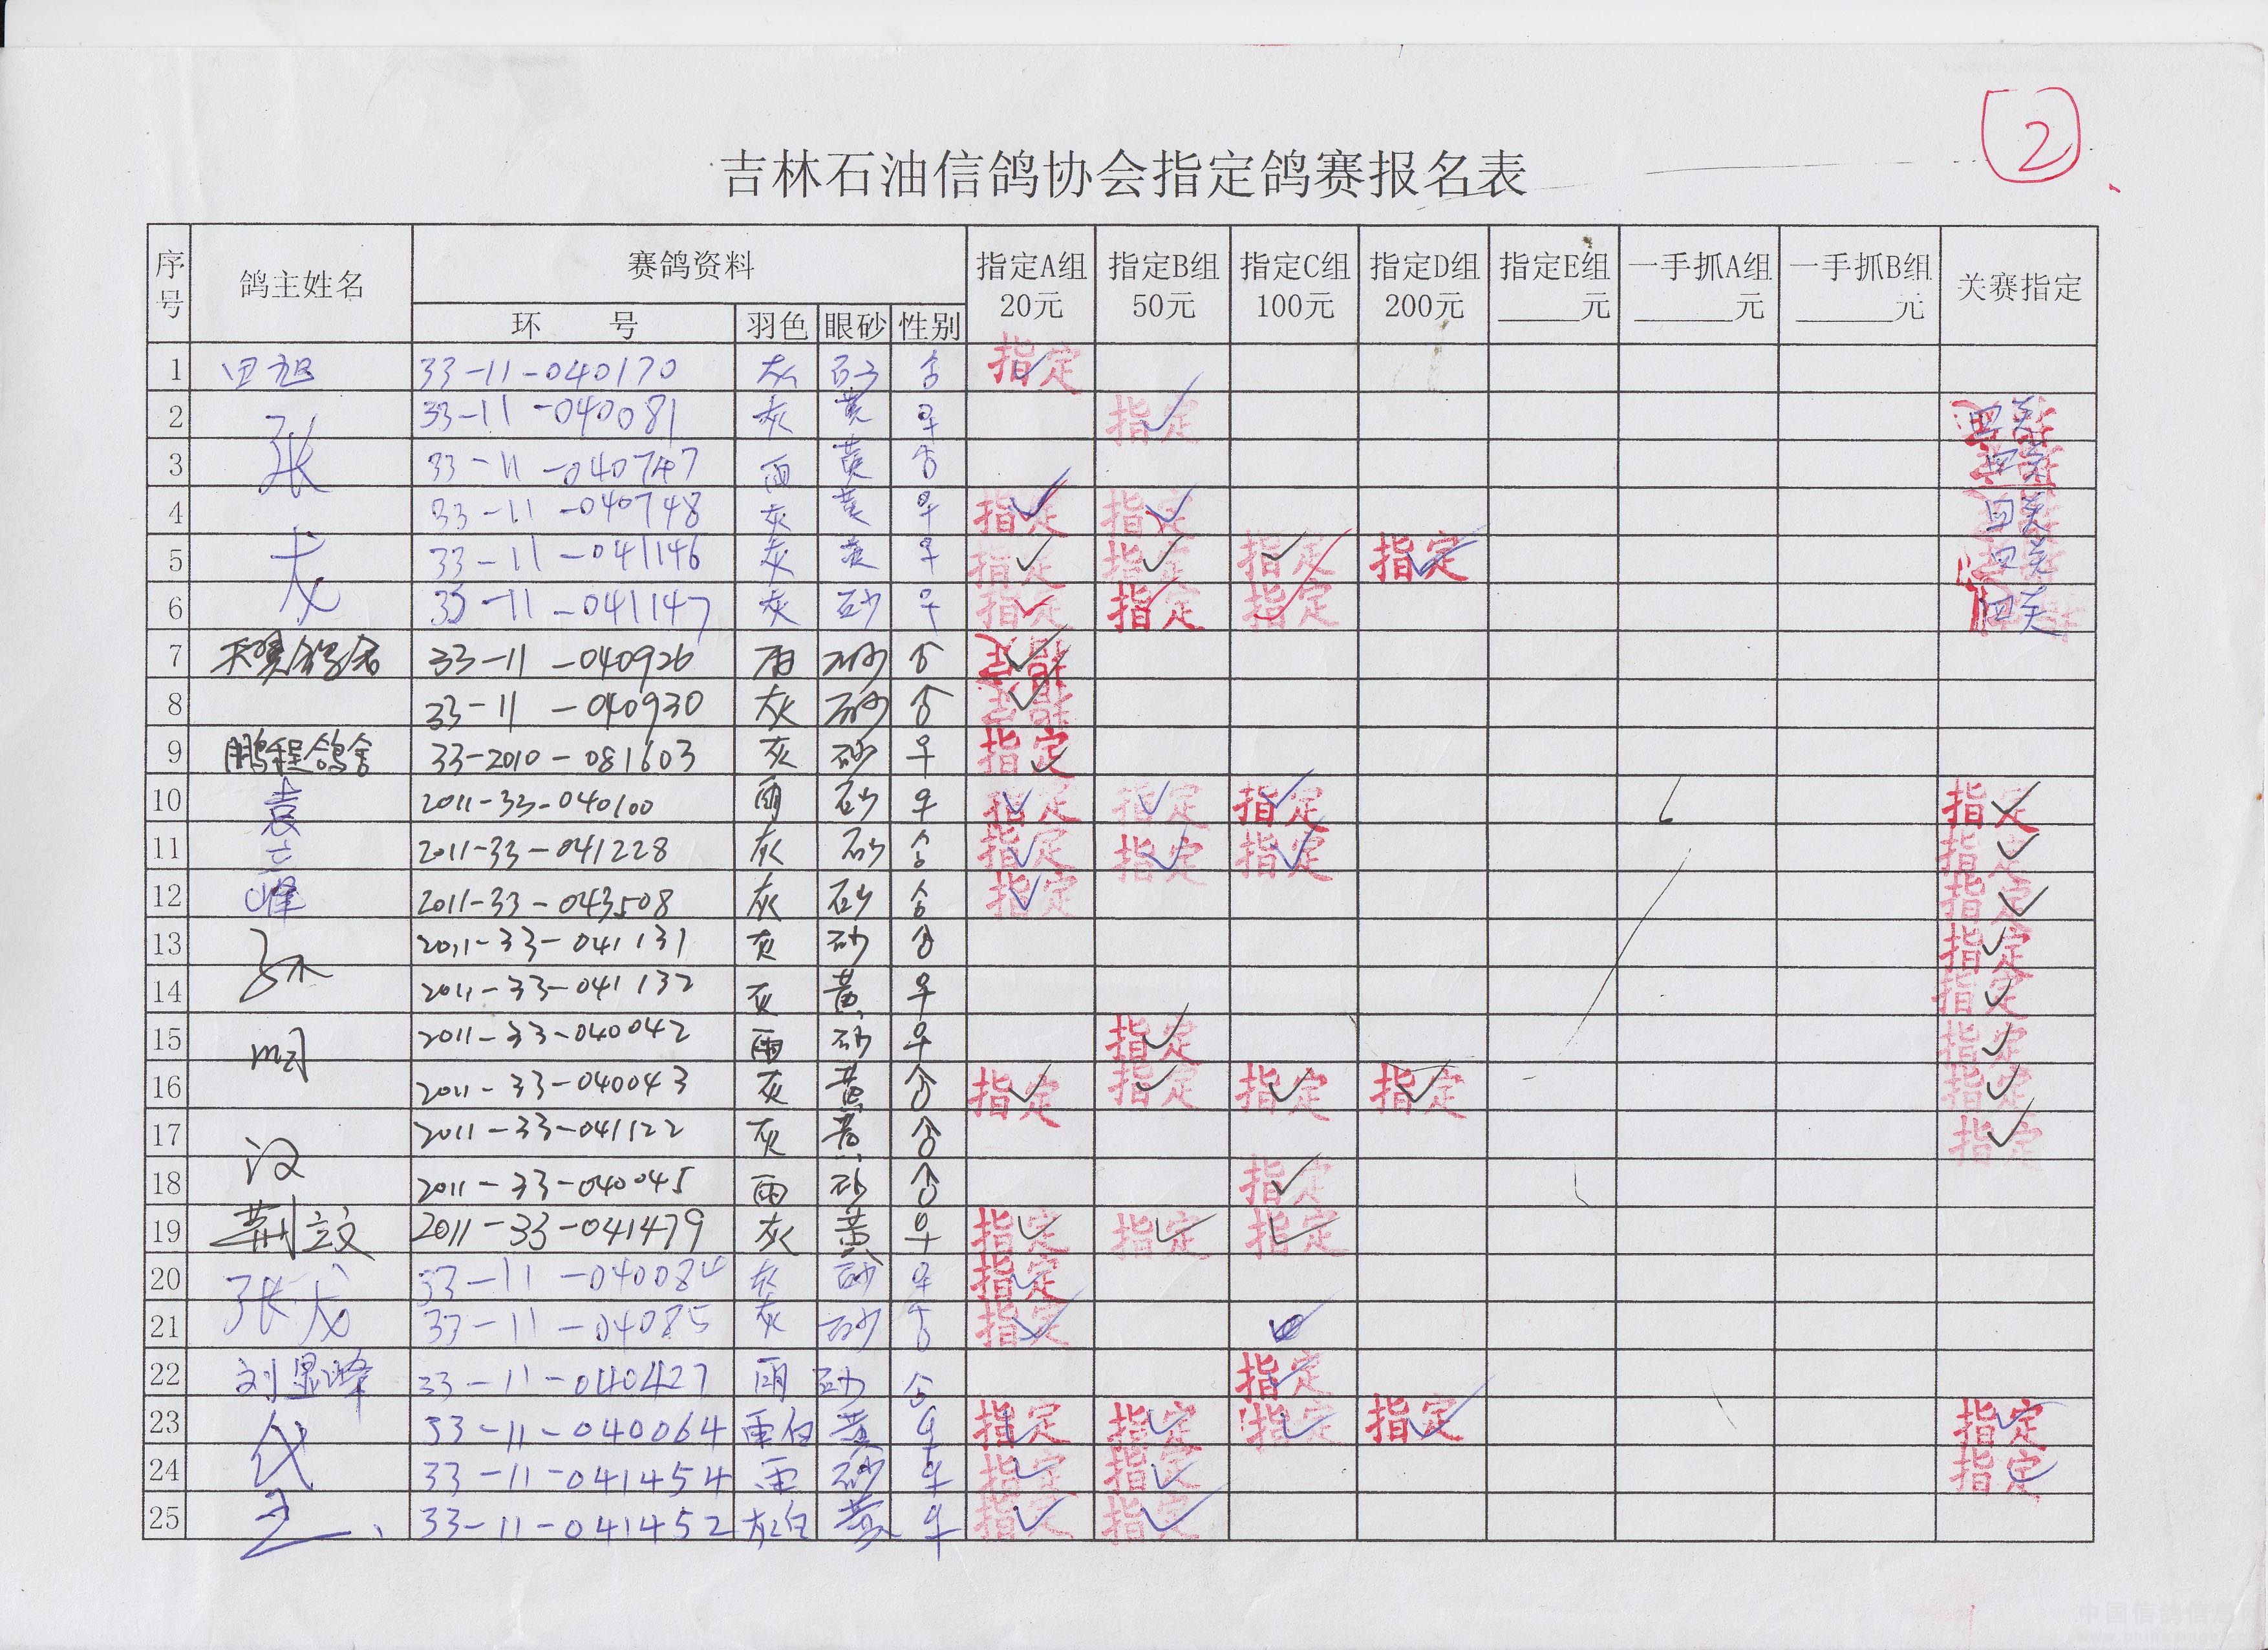 2
吉林石油信鸽协会指定鸽赛报名表
序号 鸽主姓名 赛鸽资料 指定A组 20元 指定B组 50元 指定C组 100元 指定D组 200元 指定E组 ____元 一手抓A组 ____元 一手抓B组 ____元 关赛指定
环 号 羽色 眼砂 性别
1 田旭 33-11-040170 灰 砂 指定
2 张 33-11-040081 灰 黄 ♀ 指定 四关
3 33-11-040747 雨 黄 四关
4 33-11-040748 灰 黄 ♀ 指定 指定 四关
5 33-11-041146 灰 黄 ♀ 指定 指定 指定 指定 四关
6 33-11-041147 灰 砂 ♀ 指定 指定 指定 四关
7 33-11-040926 雨 砂 指定
8 33-11-040930 灰 砂 指定
9 鹏程鸽舍 33-2010-081603 灰 砂 ♀ 指定
10 袁 2011-33-040100 雨 砂 ♀ 指定 指定 指定 指定
11 立 2011-33-041228 灰 砂 指定 指定 指定 指定
12 峰 2011-33-043508 灰 砂 指定 指定
13 2011-33-041131 灰 砂 指定
14 2011-33-041132 灰 黄 ♀ 指定
15 明 2011-33-040042 雨 砂 ♀ 指定 指定
16 2011-33-040043 灰 黄 指定 指定 指定 指定 指定
17 汉 2011-33-041122 灰 黄 指定
18 2011-33-040045 雨 砂 指定
19 荆立文 2011-33-041479 灰 黄 ♀ 指定 指定 指定
20 33-11-040084 灰 砂 ♀ 指定
21 33-11-04085 灰 砂 指定
22 刘显峰 33-11-040427 雨 砂 指定
23 33-11-040064 雨白 黄 ♀ 指定 指定 指定 指定 指定
24 33-11-041454 雨 砂 ♀ 指定 指定 指定
25 33-11-041452 灰白 黄 ♀ 指定 指定
中国信鸽信息